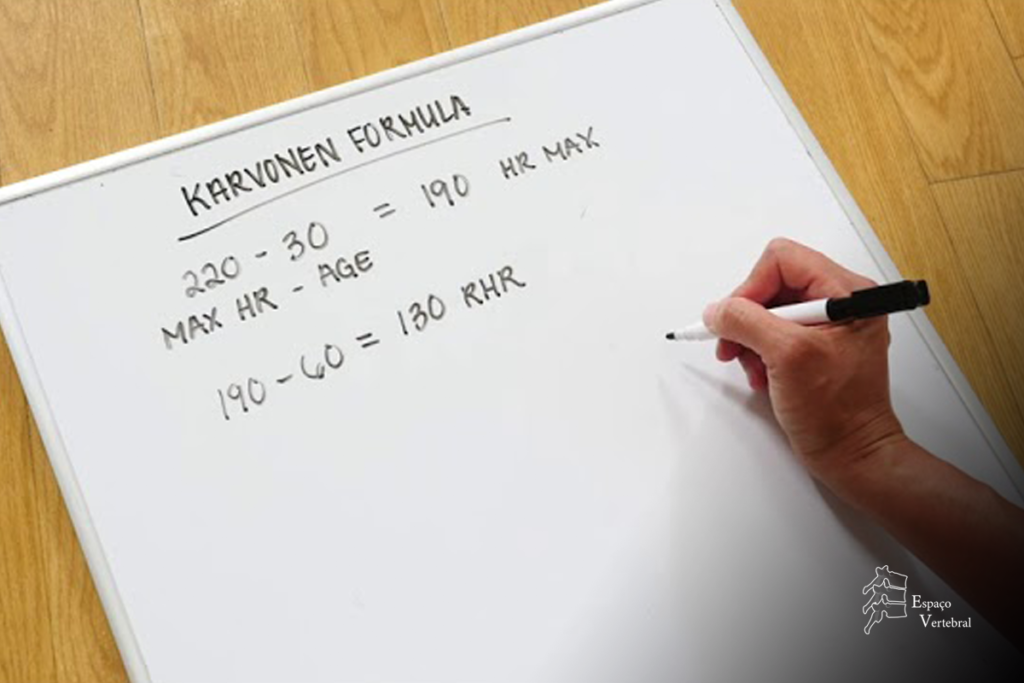 KARVONEN FORMULA
220 - 30 = 190 HR MAX
MAX HR - AGE
190 - 60 = 130 RHR
Espaço
Vertebral